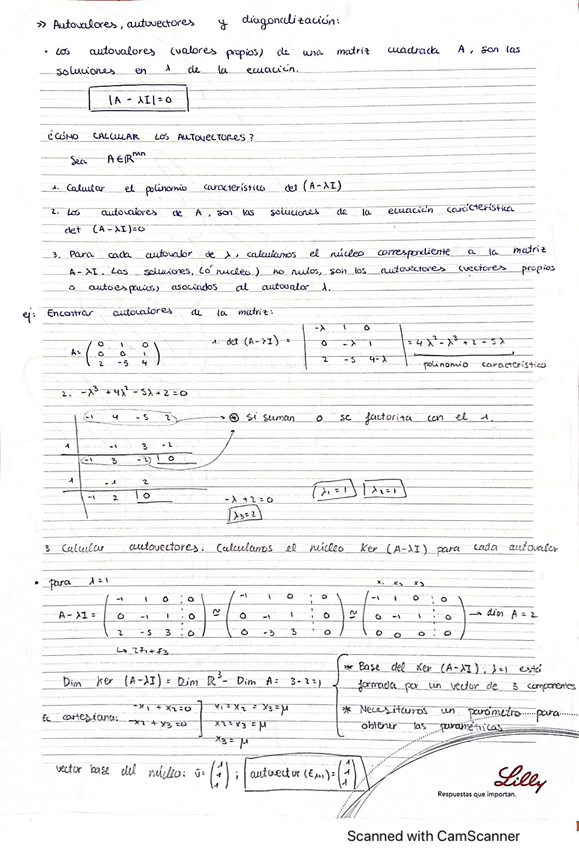 » Autovalores, autovectores y diagonalización:
• Los autovalores (valores propios) de una matriz cuadrada A, son las
soluciones en λ de la ecuación.
|A - λI| = 0
¿CÓMO CALCULAR LOS AUTOVECTORES?
Sea A∈ℝ
1. Calcular el polinomio característico det (A-λI)
2. Los autovalores de A, son las soluciones de la ecuación característica
det (A-λI)=0
3. Para cada autovalor de λ, calculamos el núcleo correspondiente a la matriz
A-λI. Las soluciones, (ó nucleo) no nulos, son los autovectores (vectores propios
o autoespacios) asociados al autovalor λ.
ej: Encontrar autovalores de la matriz:
A= ( 0 1 0 1. det (A-λI) = | -λ 1 0
0 0 1 0 -λ 1 | = 4λ²-λ³+2-5λ
2 -5 4 ) 2 -5 4-λ | polinomio característico
2. -λ³+4λ²-5λ+2=0
-1 4 -5 2 → ⊛ Si suman 0 se factoriza con el 1.
1 -1 3 -2
-1 3 -2 | 0
1 -1 2
-1 2 | 0
-λ+2=0 λ₁=1 λ₂=1
λ₃=2
3 Calcular autovectores: Calculamos el núcleo Ker (A-λI) para cada autovalor
• para λ=1 x₁ x₂ x₃
A-λI = ( -1 1 0 : 0 ≅ ( -1 1 0 : 0 ≅ ( -1 1 0 : 0
0 -1 1 : 0 0 -1 1 : 0 0 -1 1 : 0 → dim A = 2
2 -5 3 : 0 ) 0 -3 3 : 0 ) 0 0 0 : 0 )
↳ 2F₁+F₃
Dim Ker (A-λI) = Dim ℝ³- Dim A = 3-2=1
* Base del Ker (A-λI), λ=1 está
formada por un vector de 3 componentes
* Necesitamos un parámetro para
obtener las paramétricas
Ec cartesiana: -x₁ + x₂=0 x₁=x₂ = x₃=μ
-x₂ + x₃=0 x₂=x₃ = μ
x₃ = μ
vector base del núcleo: ū = ( 1 1 1 ) ; autovector = ( 1 1 1 )
Lilly
Respuestas que importan.
Scanned with CamScanner